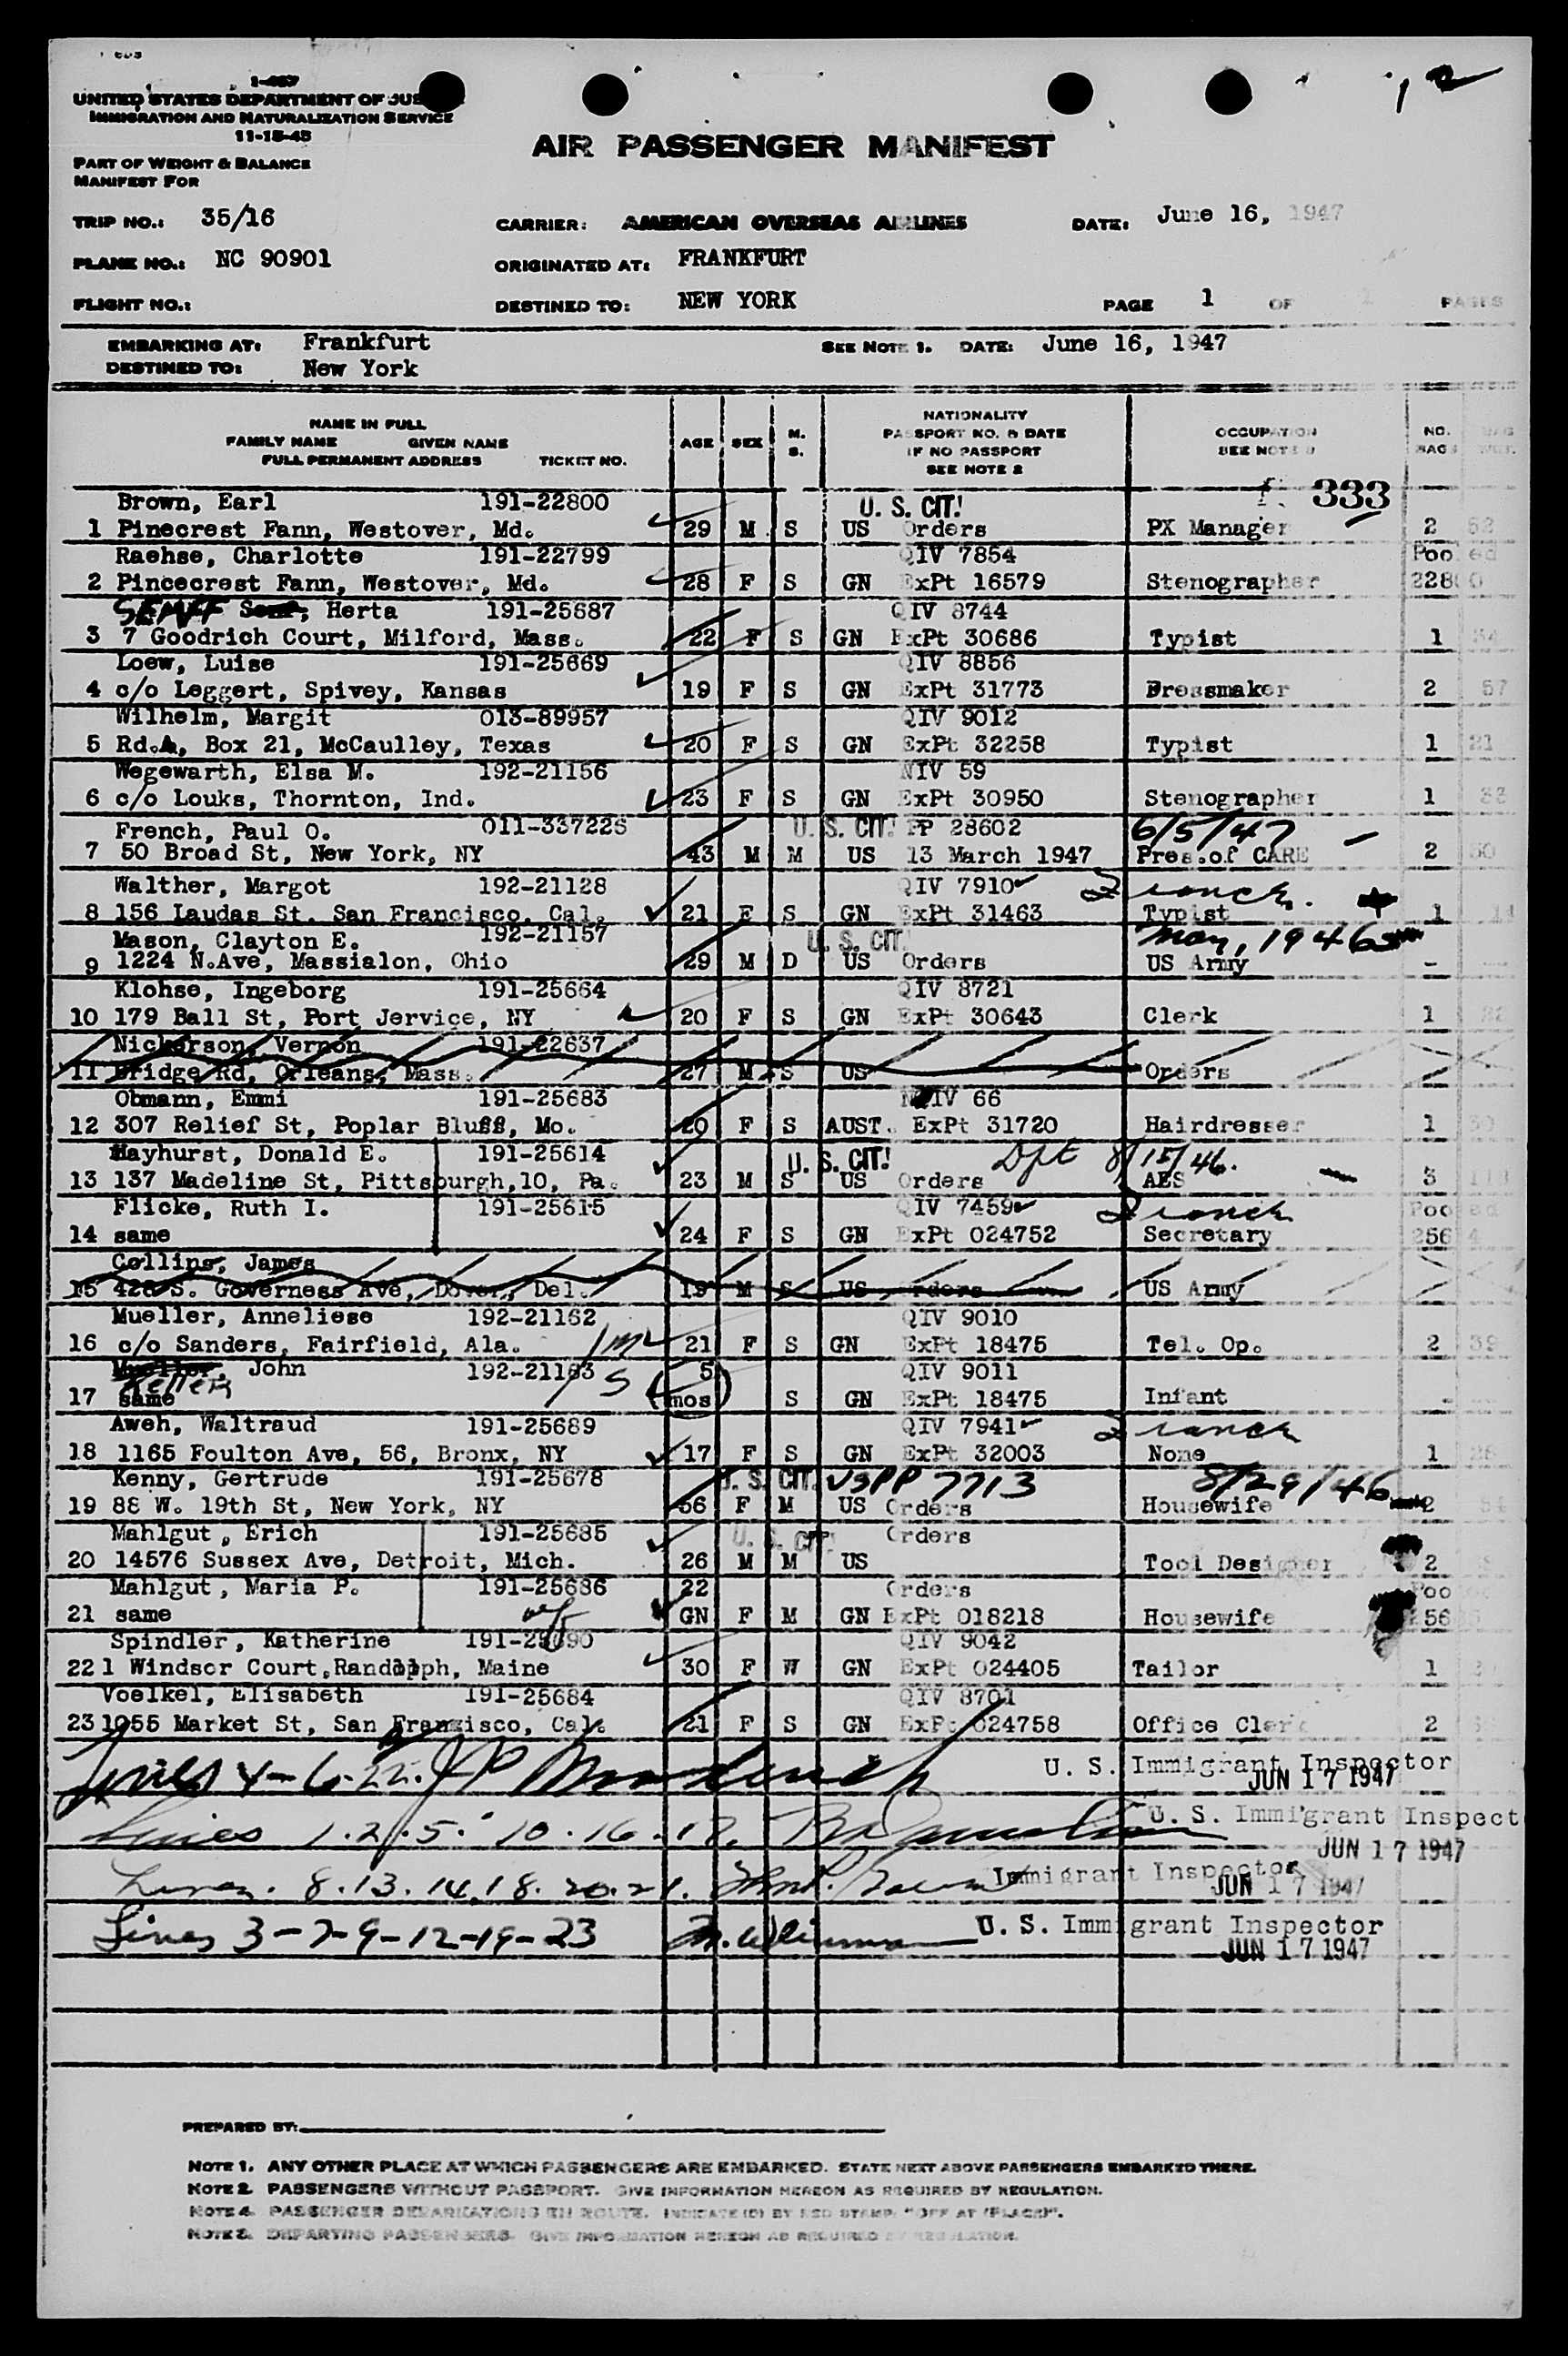 1-467
UNITED STATES DEPARTMENT OF JUS
IMMIGRATION AND NATURALIZATION SERVICE
11-15-45
AIR PASSENGER MANIFEST
PART OF WEIGHT & BALANCE
MANIFEST FOR
TRIP NO.: 35/16 CARRIER: AMERICAN OVERSEAS AIRLINES DATE: June 16, 1947
PLANE NO.: NC 90901 ORIGINATED AT: FRANKFURT
FLIGHT NO.: DESTINED TO: NEW YORK PAGE 1 OF 1 PAGES
EMBARKING AT: Frankfurt SEE NOTE 1. DATE: June 16, 1947
DESTINED TO: New York
NAME IN FULL
FAMILY NAME GIVEN NAME
FULL PERMANENT ADDRESS TICKET NO. AGE SEX M. S. NATIONALITY PASSPORT NO. & DATE IF NO PASSPORT SEE NOTE 2 OCCUPATION SEE NOTE 3 NO. BAGS BAG WGT.
333
Brown, Earl 191-22800 U. S. CIT.
1 Pinecrest Fann, Westover, Md. 29 M S US Orders PX Manager 2 52
Raehse, Charlotte 191-22799 QIV 7854 Pooled
2 Pincecrest Fann, Westover, Md. 28 F S GN ExPt 16579 Stenographer 22800
SENFF Herta 191-25687 QIV 8744
3 7 Goodrich Court, Milford, Mass. 22 F S GN ExPt 30686 Typist 1 34
Loew, Luise 191-25669 QIV 8856
4 c/o Leggert, Spivey, Kansas 19 F S GN ExPt 31773 Dressmaker 2 57
Wilhelm, Margit 013-89957 QIV 9012
5 Rd.A, Box 21, McCaulley, Texas 20 F S GN ExPt 32258 Typist 1 21
Wegewarth, Elsa M. 192-21156 NIV 59
6 c/o Louks, Thornton, Ind. 23 F S GN ExPt 30950 Stenographer 1 33
French, Paul O. 011-337225 U. S. CIT. PP 28602 6/5/47
7 50 Broad St, New York, NY 43 M M US 13 March 1947 Pres.of CARE 2 50
Walther, Margot 192-21128 QIV 7910
8 156 Laudas St. San Francisco. Cal. 21 F S GN ExPt 31463 Typist 1 14
Mason, Clayton E. 192-21157 U. S. CIT. May, 1946
9 1224 N.Ave, Massialon, Ohio 29 M D US Orders US Army - -
Klohse, Ingeborg 191-25664 QIV 8721
10 179 Ball St, Port Jervice, NY 20 F S GN ExPt 30643 Clerk 1
Nickerson, Vernon 191-22637
11 Bridge Rd, Orleans, Mass. 27 M S US Orders
Obmann, Emmi 191-25683 IV 66
12 307 Relief St, Poplar Bluff, Mo. 20 F S AUST. ExPt 31720 Hairdresser 1 30
Hayhurst, Donald E. 191-25614 U. S. CIT. Dpt 8/15/46.
13 137 Madeline St, Pittsburgh,10, Pa. 23 M S US Orders AES 3
Flicke, Ruth I. 191-25615 QIV 7459 Pooled
14 same 24 F S GN ExPt 024752 Secretary 25614
Collins, James
15 428 S. Governess Ave, Dover, Del. 19 M S US Orders US Army
Mueller, Anneliese 192-21162 QIV 9010
16 c/o Sanders, Fairfield, Ala. 21 F S GN ExPt 18475 Tel. Op. 2 39
Mueller, John 192-21163 5 QIV 9011
17 same mos S GN ExPt 18475 Infant
Aweh, Waltraud 191-25689 QIV 7941
18 1165 Foulton Ave, 56, Bronx, NY 17 F S GN ExPt 32003 None 1 26
Kenny, Gertrude 191-25678 U. S. CIT. USPP 7713 8/29/46
19 88 W. 19th St, New York, NY 56 F M US Orders Housewife 2
Mahlgut, Erich 191-25685 U. S. CIT. Orders
20 14576 Sussex Ave, Detroit, Mich. 26 M M US Tool Designer 2
Mahlgut, Maria P. 191-25686 22 Orders Pooled
21 same GN F M GN ExPt 018218 Housewife 25685
Spindler, Katherine 191-25690 QIV 9042
22 1 Windsor Court,Randolph, Maine 30 F W GN ExPt 024405 Tailor 1
Voelkel, Elisabeth 191-25684 QIV 8701
23 1055 Market St, San Franzisco, Cal. 21 F S GN ExPt 024758 Office Clerk 2
Lines 4-6-22. U. S. Immigrant Inspector
JUN 17 1947
Lines 1.2.5. 10.16.17. U. S. Immigrant Inspect
JUN 17 1947
Lines. 8.13.14.18.20.21. Immigrant Inspector
JUN 17 1947
Lines 3-7-9-12-19-23 U. S. Immigrant Inspector
JUN 17 1947
PREPARED BY:
NOTE 1. ANY OTHER PLACE AT WHICH PASSENGERS ARE EMBARKED. STATE NEXT ABOVE PASSENGERS EMBARKED THERE.
NOTE 2. PASSENGERS WITHOUT PASSPORT. GIVE INFORMATION HEREON AS REQUIRED BY REGULATION.
NOTE 4. PASSENGER DEBARKATIONS EN ROUTE. INDICATE (D) BY RED STAMP. "OFF AT (PLACE)".
NOTE 3. DEPARTING PASSENGERS. GIVE INFORMATION HEREON AS REQUIRED BY REGULATION.